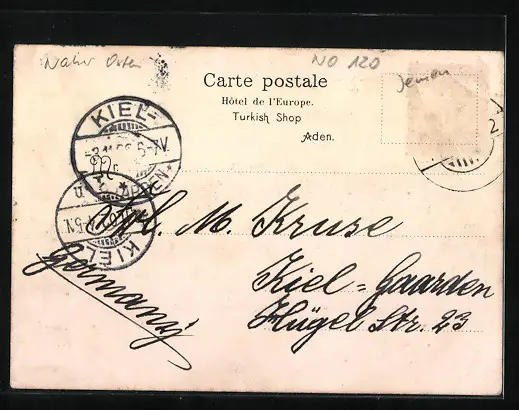 Naher Osten
NO 120
Jemen
Carte postale
Hôtel de l'Europe.
Turkish Shop
Aden.
KIEL-
KIEL
M. Kruse
Kiel-Gaarden
Hügel Str. 23
Germany